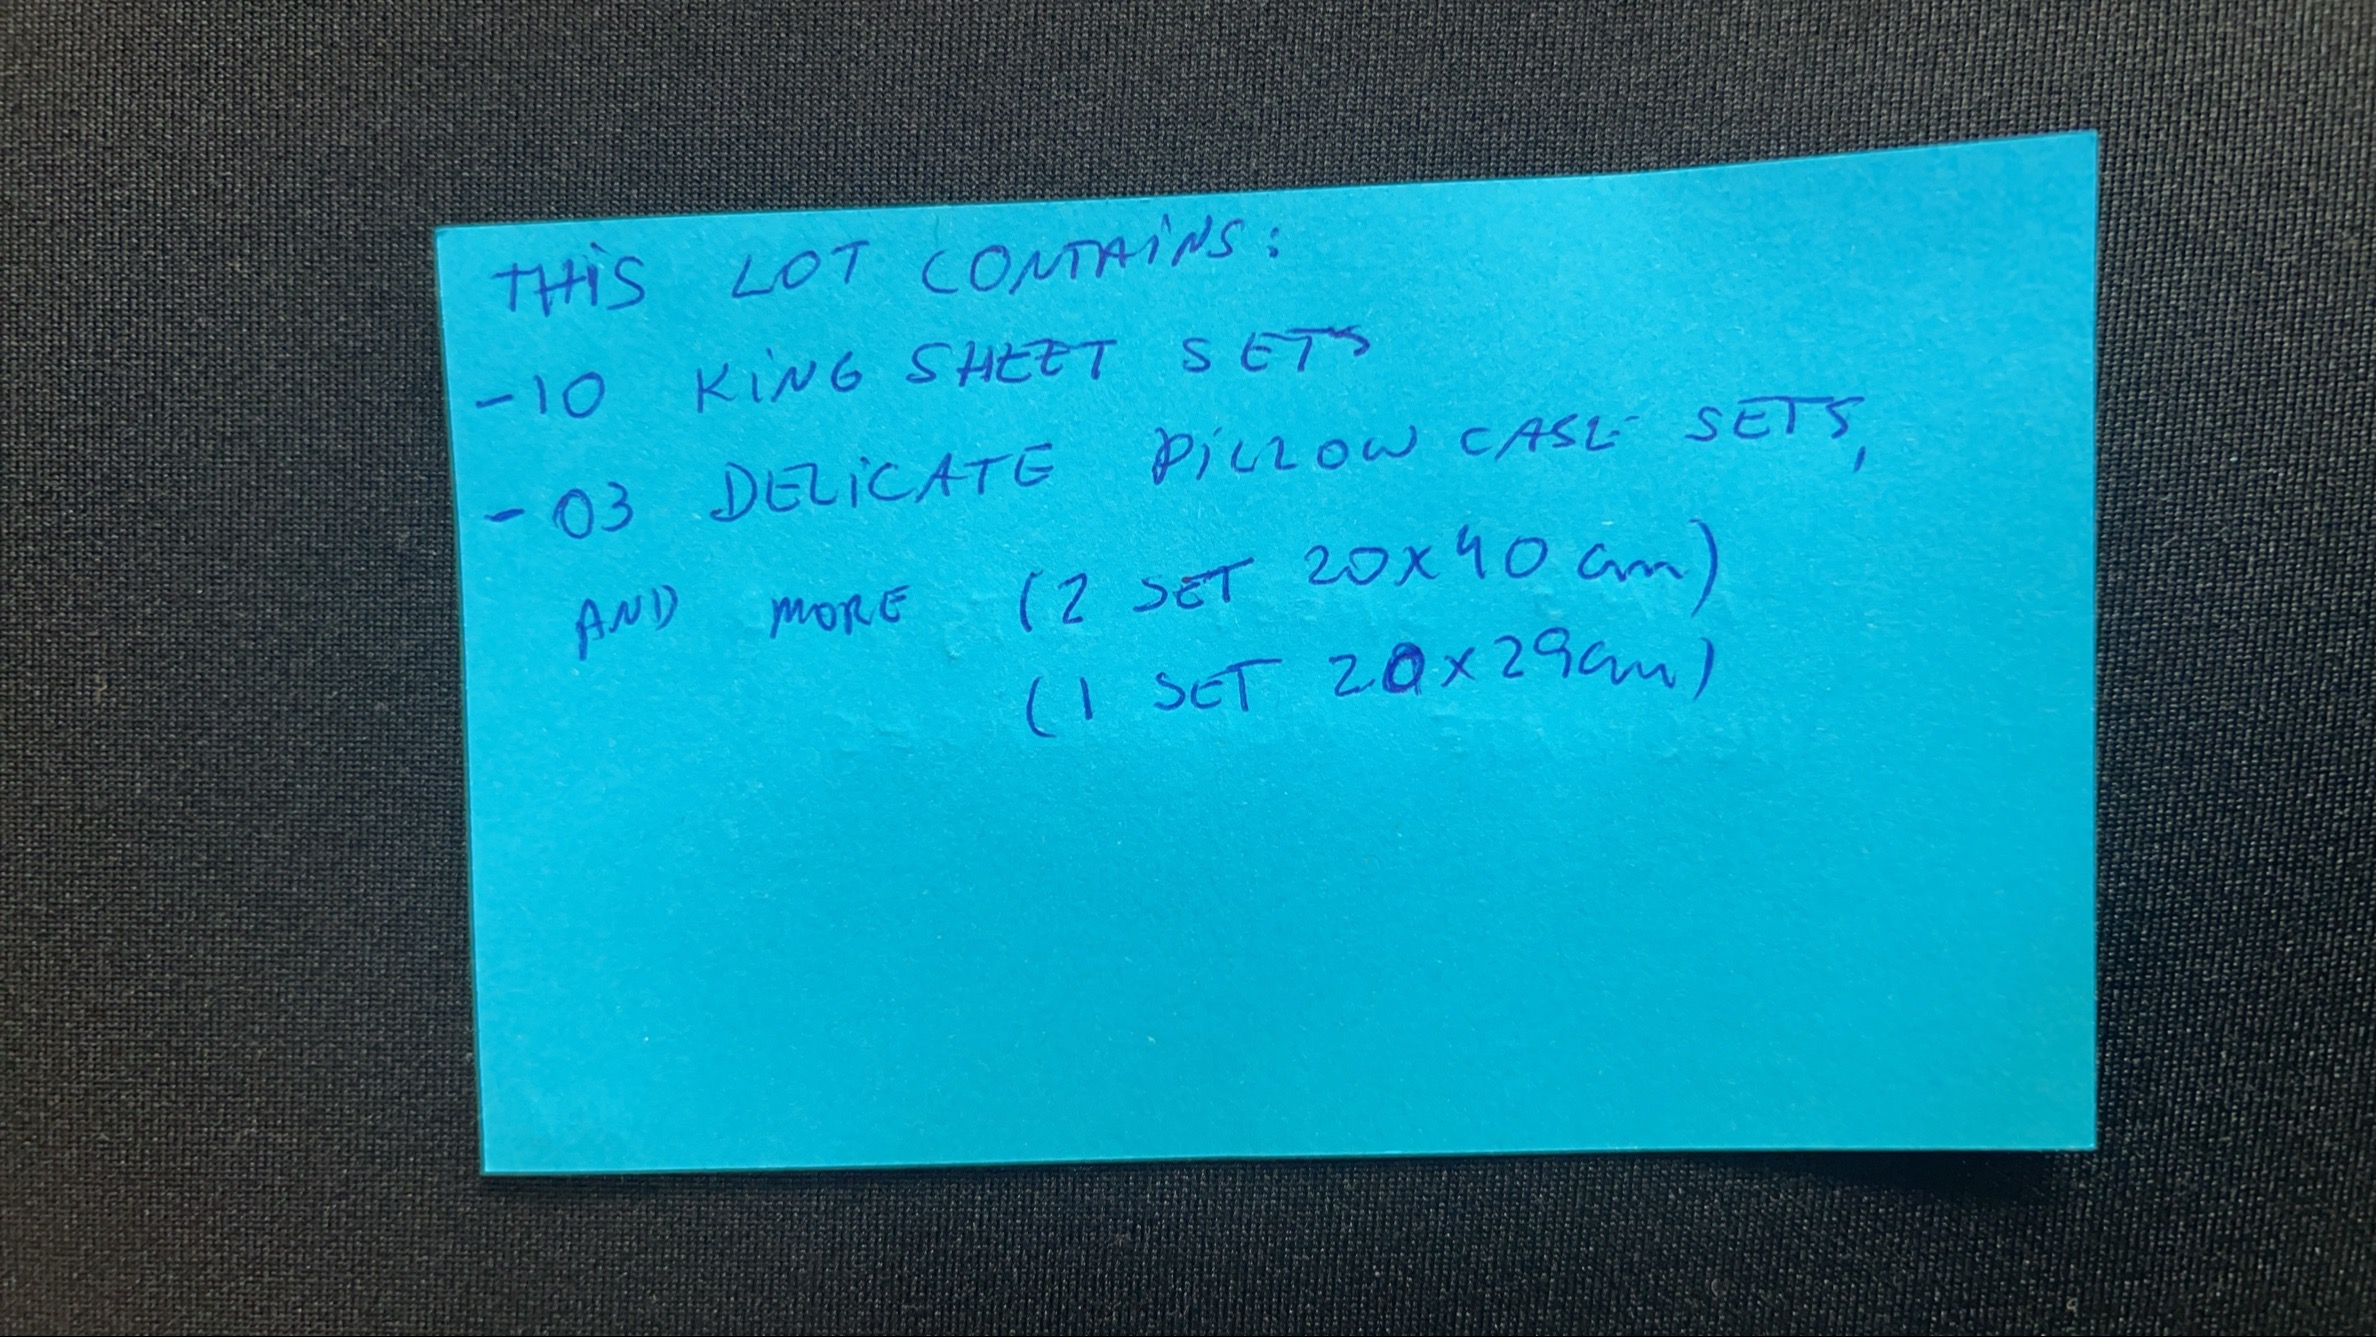 THiS LOT CONTAiNS:
-10 KiNG SHEET SETS
-03 DELiCATE PiLLOW CASE SETS,
AND MORE (2 SET 20x40 cm)
(1 SET 20x29cm)